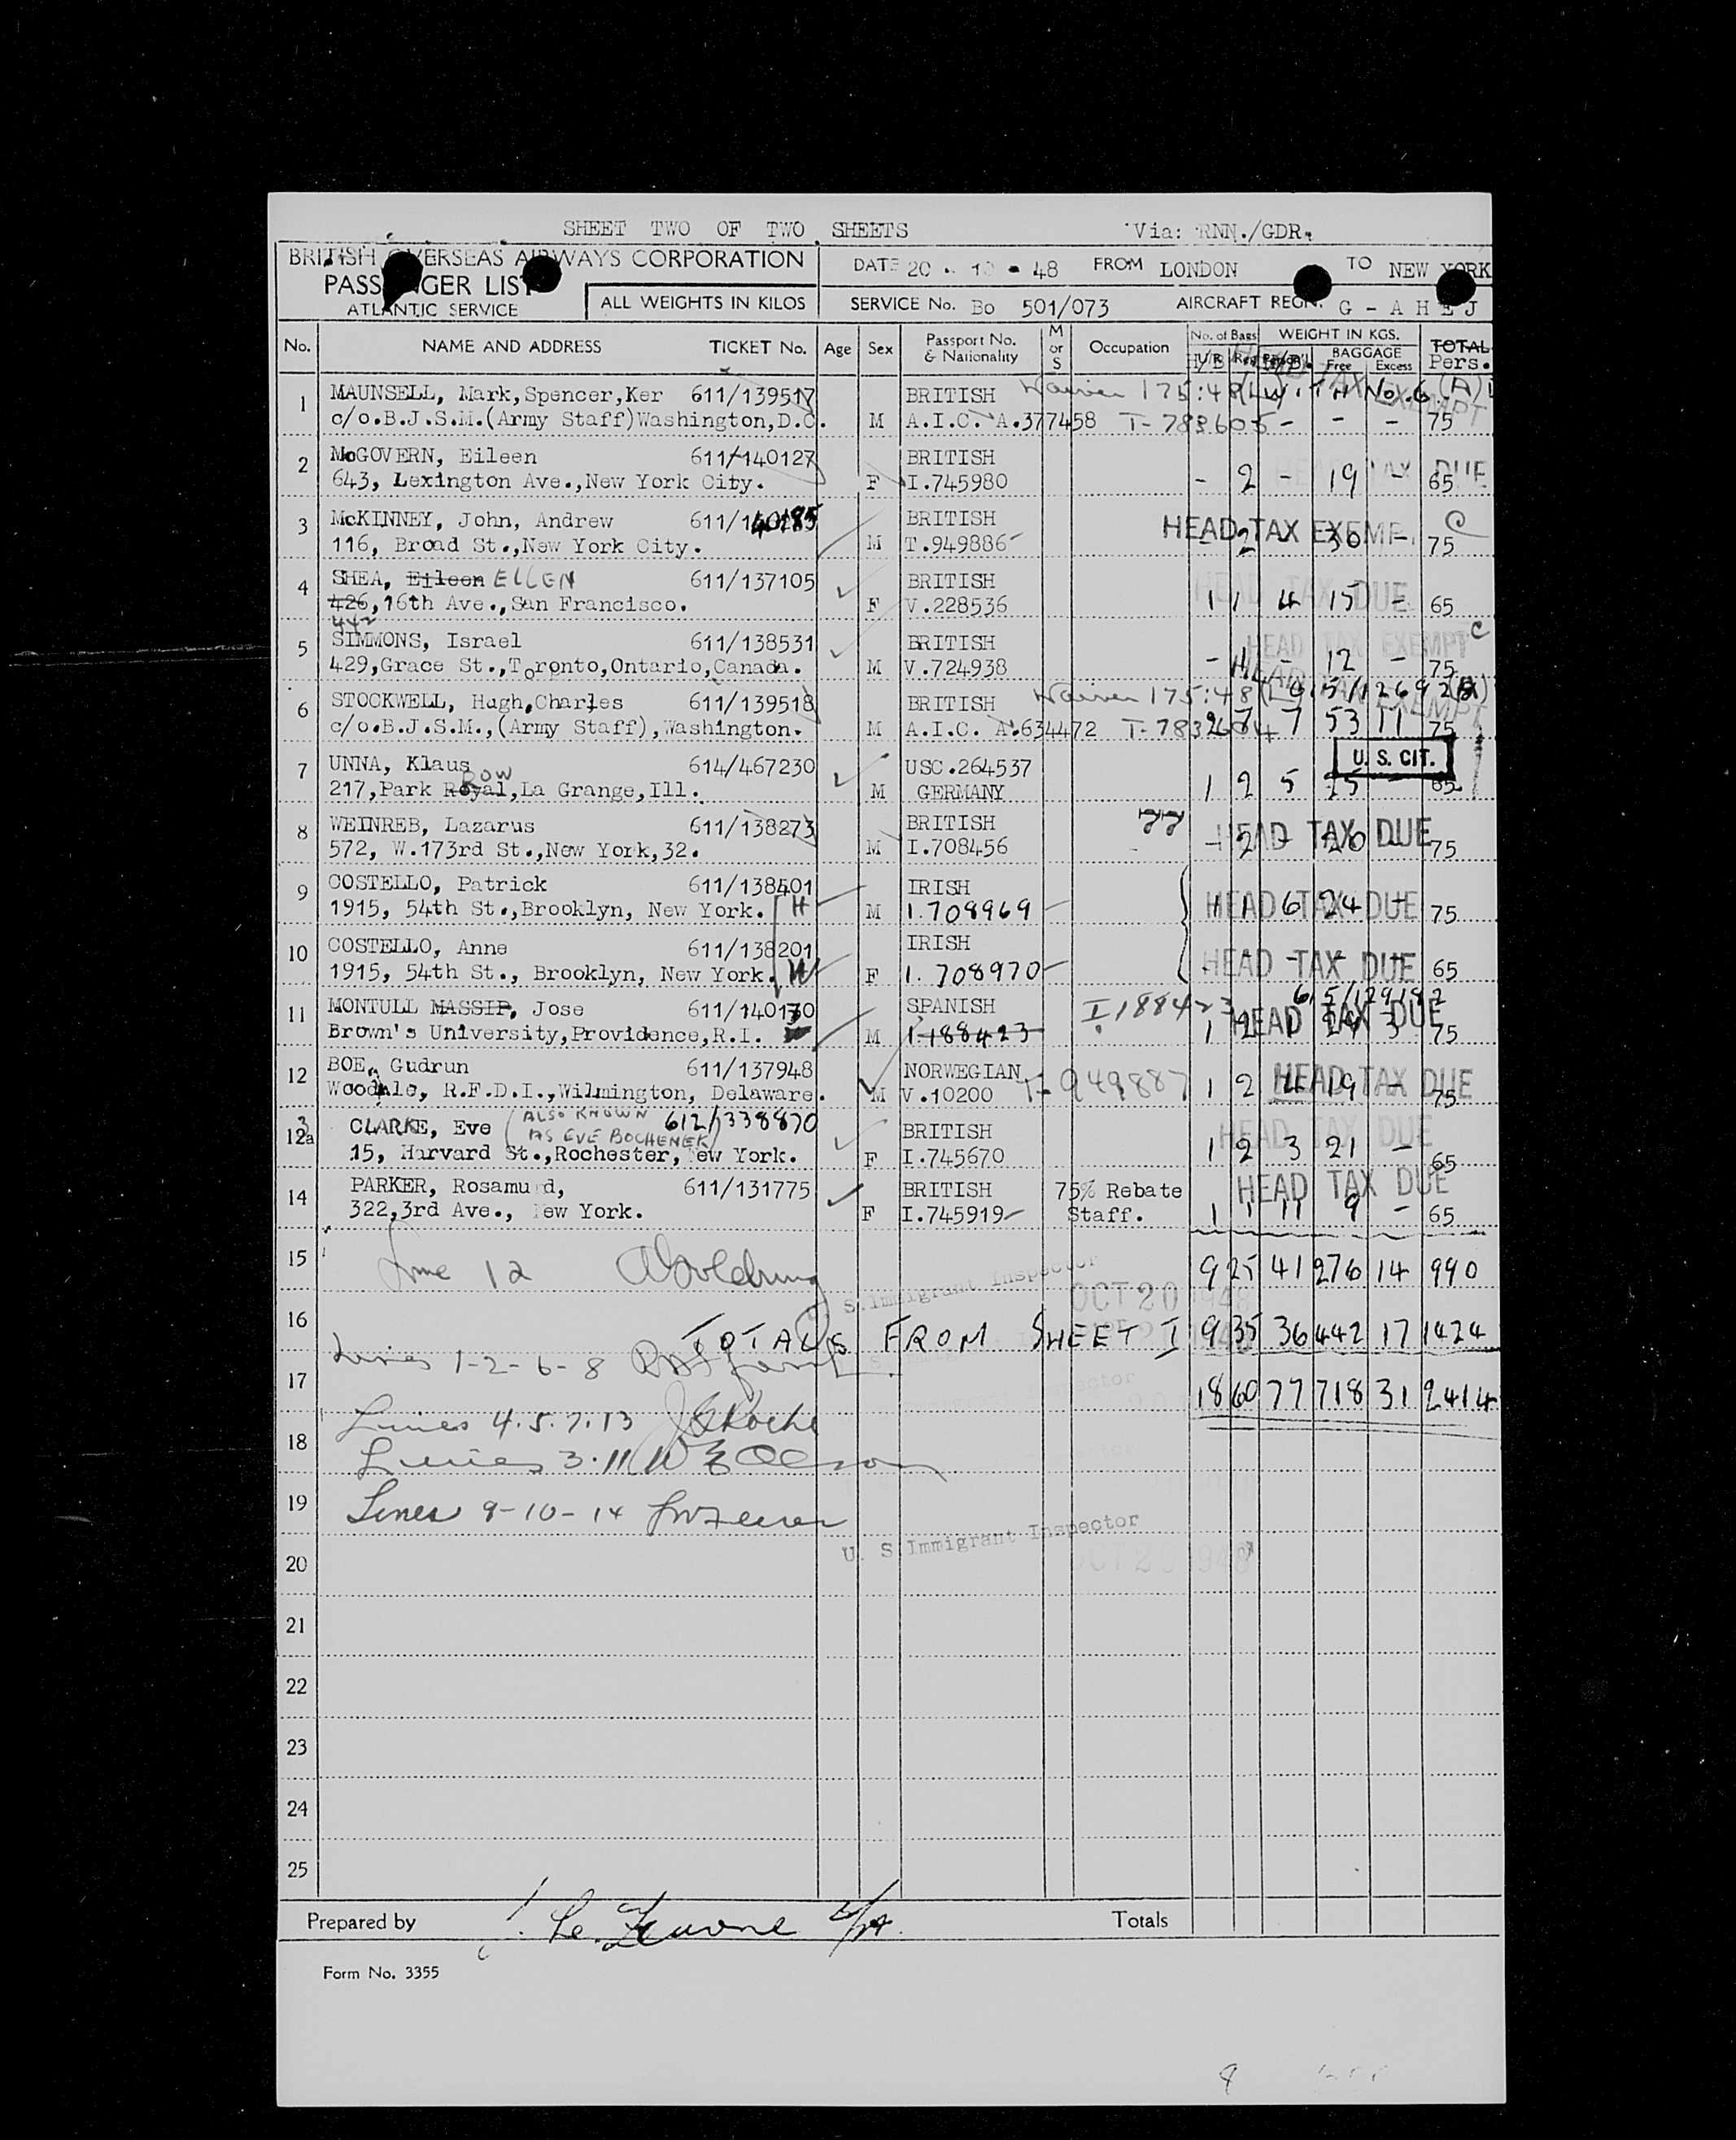 SHEET TWO OF TWO SHEETS Via: RNN./GDR.
BRITISH OVERSEAS AIRWAYS CORPORATION DATE 20 - 10 - 48 FROM LONDON TO NEW YORK
PASSENGER LIST
ATLANTIC SERVICE ALL WEIGHTS IN KILOS SERVICE No. Bo 501/073 AIRCRAFT REGN. G - A H E J
No. NAME AND ADDRESS TICKET No. Age Sex Passport No. & Nationality M or S Occupation No. of Bags WEIGHT IN KGS. TOTAL
BAGGAGE Free Excess Pers.
1 MAUNSELL, Mark,Spencer,Ker 611/139517 BRITISH Waiver 175:48
c/o.B.J.S.M.(Army Staff)Washington,D.C. M A.I.C. A.377458 T-783605 - - - 75
2 McGOVERN, Eileen 611/140127 BRITISH HEAD TAX DUE
643, Lexington Ave.,New York City. F I.745980 - 2 - 19 - 65
3 McKINNEY, John, Andrew 611/140185 BRITISH HEAD TAX EXEMPT C
116, Broad St.,New York City. M T.949886 - 2 - 30 - 75
4 SHEA, Eileen ELLEN 611/137105 BRITISH HEAD TAX DUE
426,16th Ave.,San Francisco. F V.228536 1 1 4 15 - 65
442
5 SIMMONS, Israel 611/138531 BRITISH HEAD TAX EXEMPT C
429,Grace St.,Toronto,Ontario,Canada. M V.724938 - 1 - 12 - 75
6 STOCKWELL, Hugh,Charles 611/139518 BRITISH Waiver 175:48
c/o.B.J.S.M.,(Army Staff),Washington. M A.I.C. A.634472 T-783604 2 7 7 53 11 75
7 UNNA, Klaus 614/467230 USC.264537 U. S. CIT.
217,Park Royal ROW,La Grange,Ill. M GERMANY 1 2 5 25 - 85
8 WEINREB, Lazarus 611/138273 BRITISH HEAD TAX DUE
572, W.173rd St.,New York,32. M I.708456 - 2 - 20 - 75
9 COSTELLO, Patrick 611/138401 IRISH HEAD TAX DUE
1915, 54th St.,Brooklyn, New York. H M I.708969 1 1 6 24 - 75
10 COSTELLO, Anne 611/138201 IRISH HEAD TAX DUE
1915, 54th St., Brooklyn, New York. W F I. 708970 65
11 MONTULL MASSIP, Jose 611/140130 SPANISH I.188423 615/129182
Brown's University,Providence,R.I. M I-188423 HEAD TAX DUE 75
12 BOE, Gudrun 611/137948 NORWEGIAN T-949887 HEAD TAX DUE
Woodale, R.F.D.I.,Wilmington, Delaware. M V.10200 1 2 4 19 - 75
12a 3 CLARKE, Eve (ALSO KNOWN AS EVE BOCHENEK) 612/338870 BRITISH HEAD TAX DUE
15, Harvard St.,Rochester, New York. F I.745670 1 2 3 21 - 65
14 PARKER, Rosamund, 611/131775 BRITISH 75% Rebate HEAD TAX DUE
322,3rd Ave., New York. F I.745919 Staff. 1 1 11 9 - 65
15 Line 12 9 25 41 276 14 990
U. S. Immigrant Inspector
OCT 20 1948
16 TOTALS FROM SHEET I 9 35 36 442 17 1424
Lines 1-2-6-8
17 18 60 77 718 31 2414
Lines 4.5.7.13 Roche
18 Lines 3.11
19 Lines 9-10-14
U. S Immigrant Inspector
20 OCT 20 1948
21
22
23
24
25
Prepared by Totals
Form No. 3355